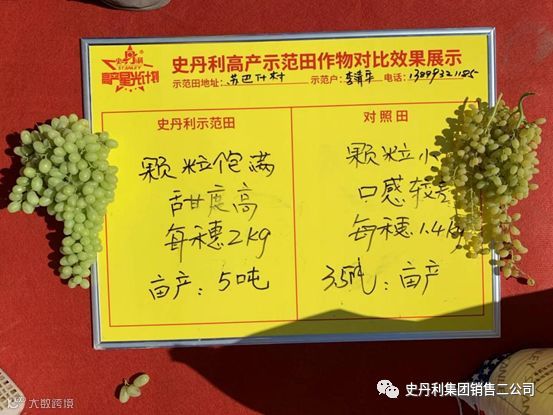 史丹利
STANLEY
高产星光计划
史丹利高产示范田作物对比效果展示
示范田地址: 苏巴什村 示范户: 李清平 电话:
史丹利示范田
对照田
颗粒饱满
甜度高
每穗2kg
亩产:5吨
颗粒小
口感较差
每穗1.4kg
3.5吨:亩产
大数跨境
史丹利集团销售二公司